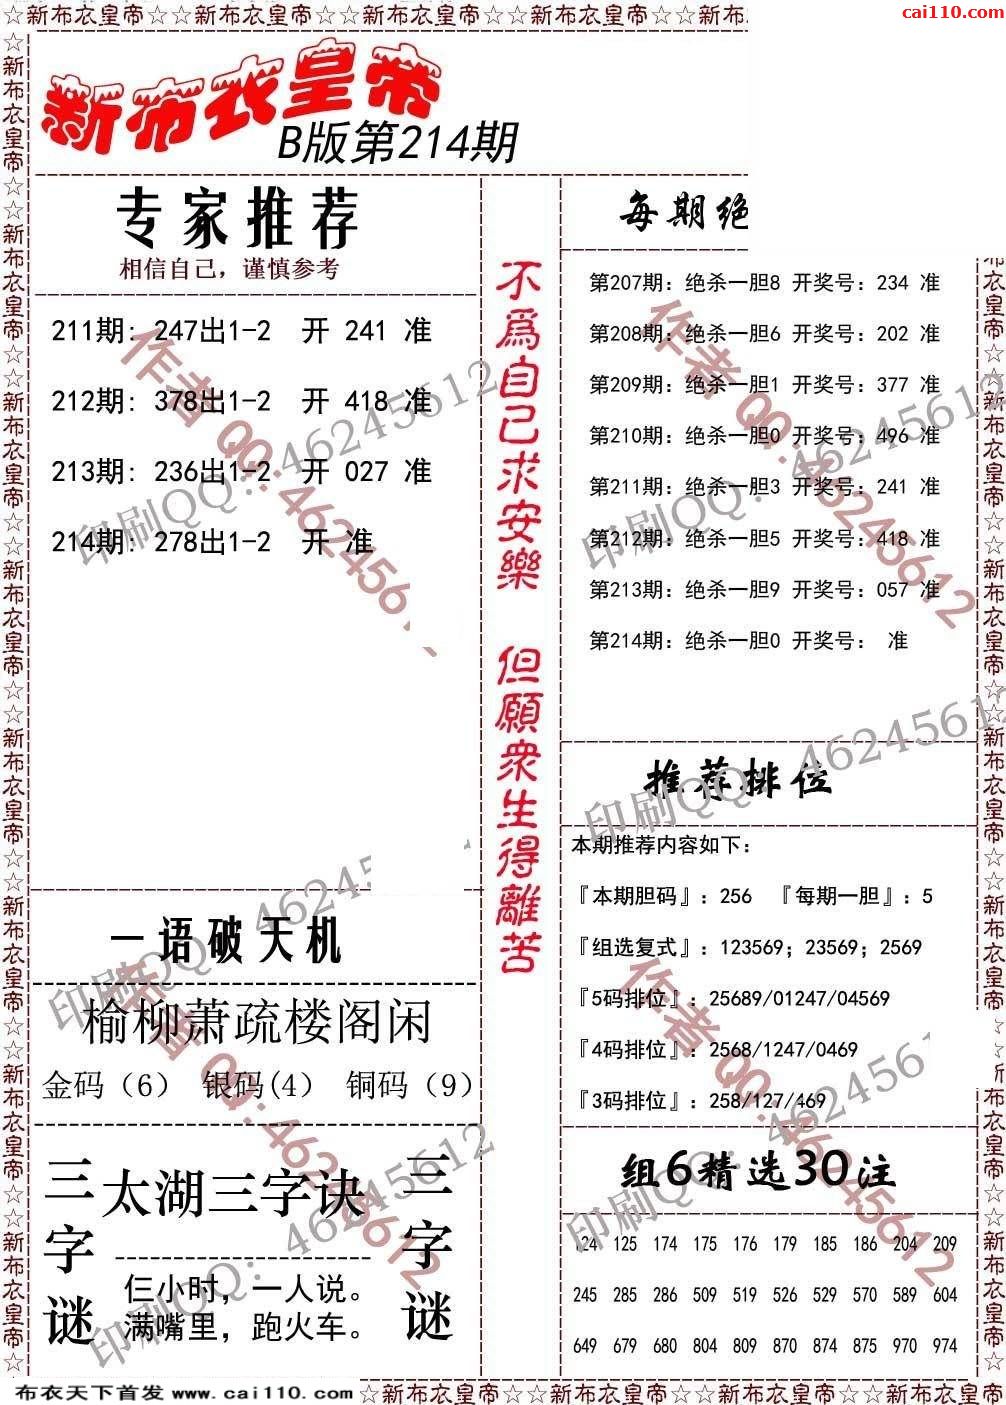 ☆新布衣皇帝☆☆新布衣皇帝☆☆新布衣皇帝☆☆新布衣皇帝☆☆新布
cai110.com
新布衣皇帝
B版第214期
专家推荐
相信自己，谨慎参考
211期: 247出1-2 开 241 准
212期: 378出1-2 开 418 准
213期: 236出1-2 开 027 准
214期: 278出1-2 开 准
一语破天机
榆柳萧疏楼阁闲
金码（6） 银码(4） 铜码（9）
三字谜
太湖三字诀
仨小时，一人说。
满嘴里，跑火车。
三字谜
不爲自己求安樂 但願衆生得離苦
每期绝
第207期: 绝杀一胆8 开奖号: 234 准
第208期: 绝杀一胆6 开奖号: 202 准
第209期: 绝杀一胆1 开奖号: 377 准
第210期: 绝杀一胆0 开奖号: 496 准
第211期: 绝杀一胆3 开奖号: 241 准
第212期: 绝杀一胆5 开奖号: 418 准
第213期: 绝杀一胆9 开奖号: 057 准
第214期: 绝杀一胆0 开奖号: 准
推荐排位
本期推荐内容如下:
『本期胆码』: 256 『每期一胆』: 5
『组选复式』: 123569; 23569; 2569
『5码排位』: 25689/01247/04569
『4码排位』: 2568/1247/0469
『3码排位』: 258/127/469
组6精选30注
124 125 174 175 176 179 185 186 204 209
245 285 286 509 519 526 529 570 589 604
649 679 680 804 809 870 874 875 970 974
作者QQ:46245612
印刷QQ: 46245612
布衣天下首发 www.cai110.com
☆新布衣皇帝☆☆新布衣皇帝☆☆新布衣皇帝☆☆新布衣皇帝